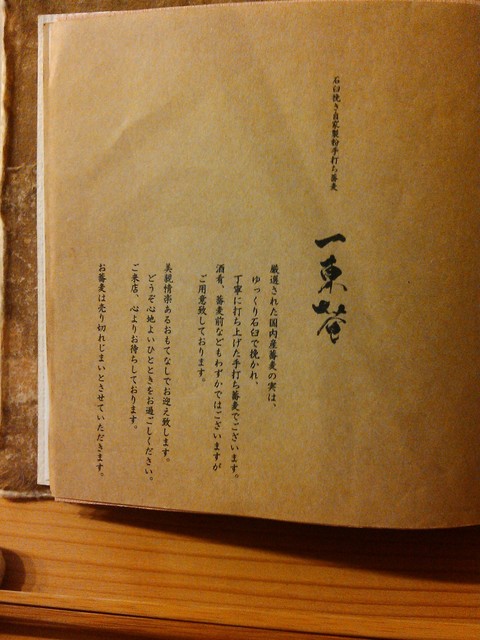 石臼挽き自家製粉手打ち蕎麦
一東菴
厳選された国内産蕎麦の実は、
ゆっくり石臼で挽かれ、
丁寧に打ち上げた手打ち蕎麦でございます。
酒肴、蕎麦前などもわずかではございますが
ご用意致しております。
美親情楽あるおもてなしでお迎え致します。
どうぞ心地よいひとときをお過ごしください。
ご来店、心よりお待ちしております。
お蕎麦は売り切れじまいとさせていただきます。